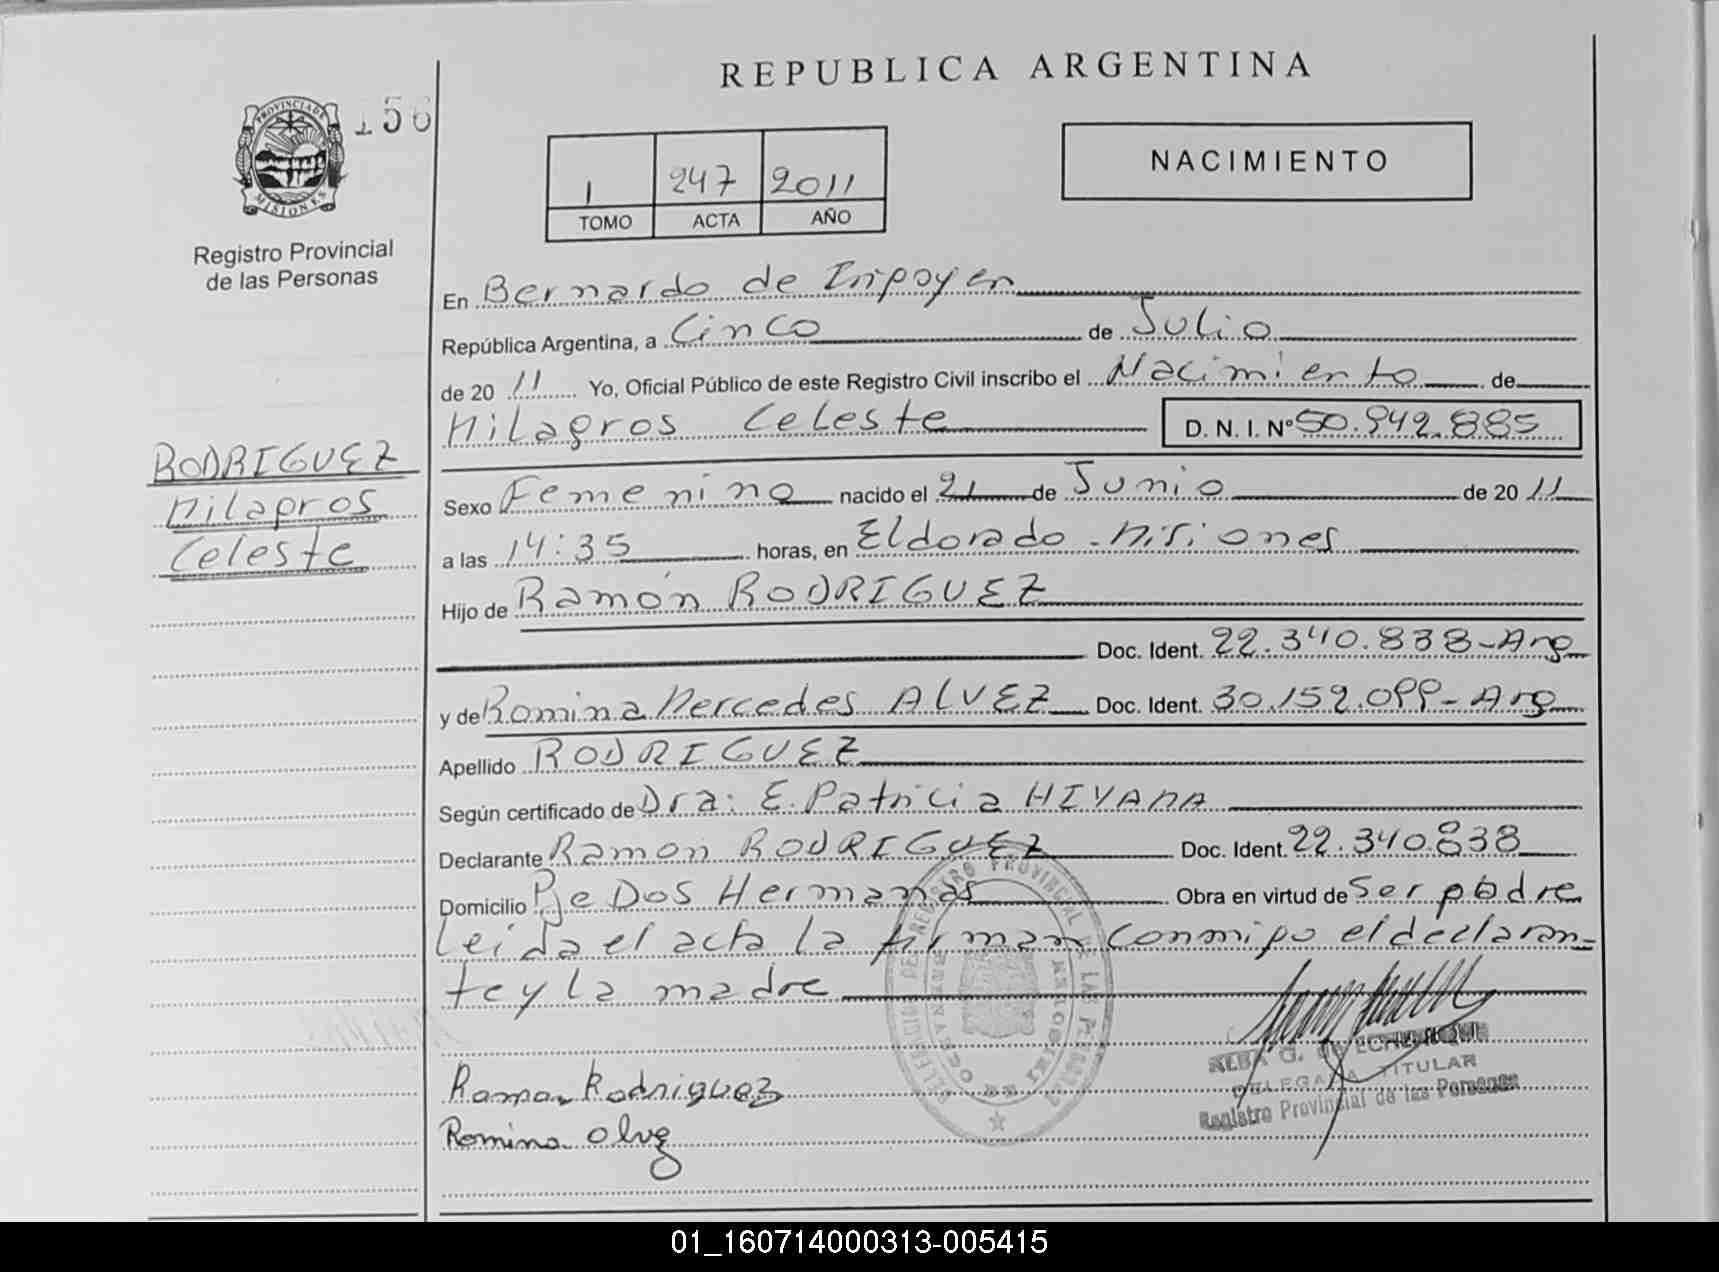 REPUBLICA ARGENTINA
PROVINCIA DE
MISIONES
156
1 247 2011
TOMO ACTA AÑO
NACIMIENTO
Registro Provincial
de las Personas
En Bernardo de Irigoyen
República Argentina, a Cinco de Julio
de 20 11 Yo, Oficial Público de este Registro Civil inscribo el Nacimiento de
Milagros Celeste D. N. I. N° 50.942.885
RODRIGUEZ
Milagros
Celeste
Sexo Femenino nacido el 21 de Junio de 20 11
a las 14:35 horas, en Eldorado - Misiones
Hijo de Ramón RODRIGUEZ
Doc. Ident. 22.340.838-Arg
y de Romina Mercedes ALVEZ Doc. Ident. 30.159.099-Arg
Apellido RODRIGUEZ
Según certificado de Dra: E. Patricia
Declarante Ramon RODRIGUEZ Doc. Ident. 22.340.838
Domicilio Dos Hermanas Obra en virtud de Ser padre
Leída el acta la firman conmigo el declaran-
te y la madre
Ramon Rodriguez
Romina Alvez
ALBA G. DE
DELEGADA TITULAR
Registro Provincial de las Personas
01_160714000313-005415